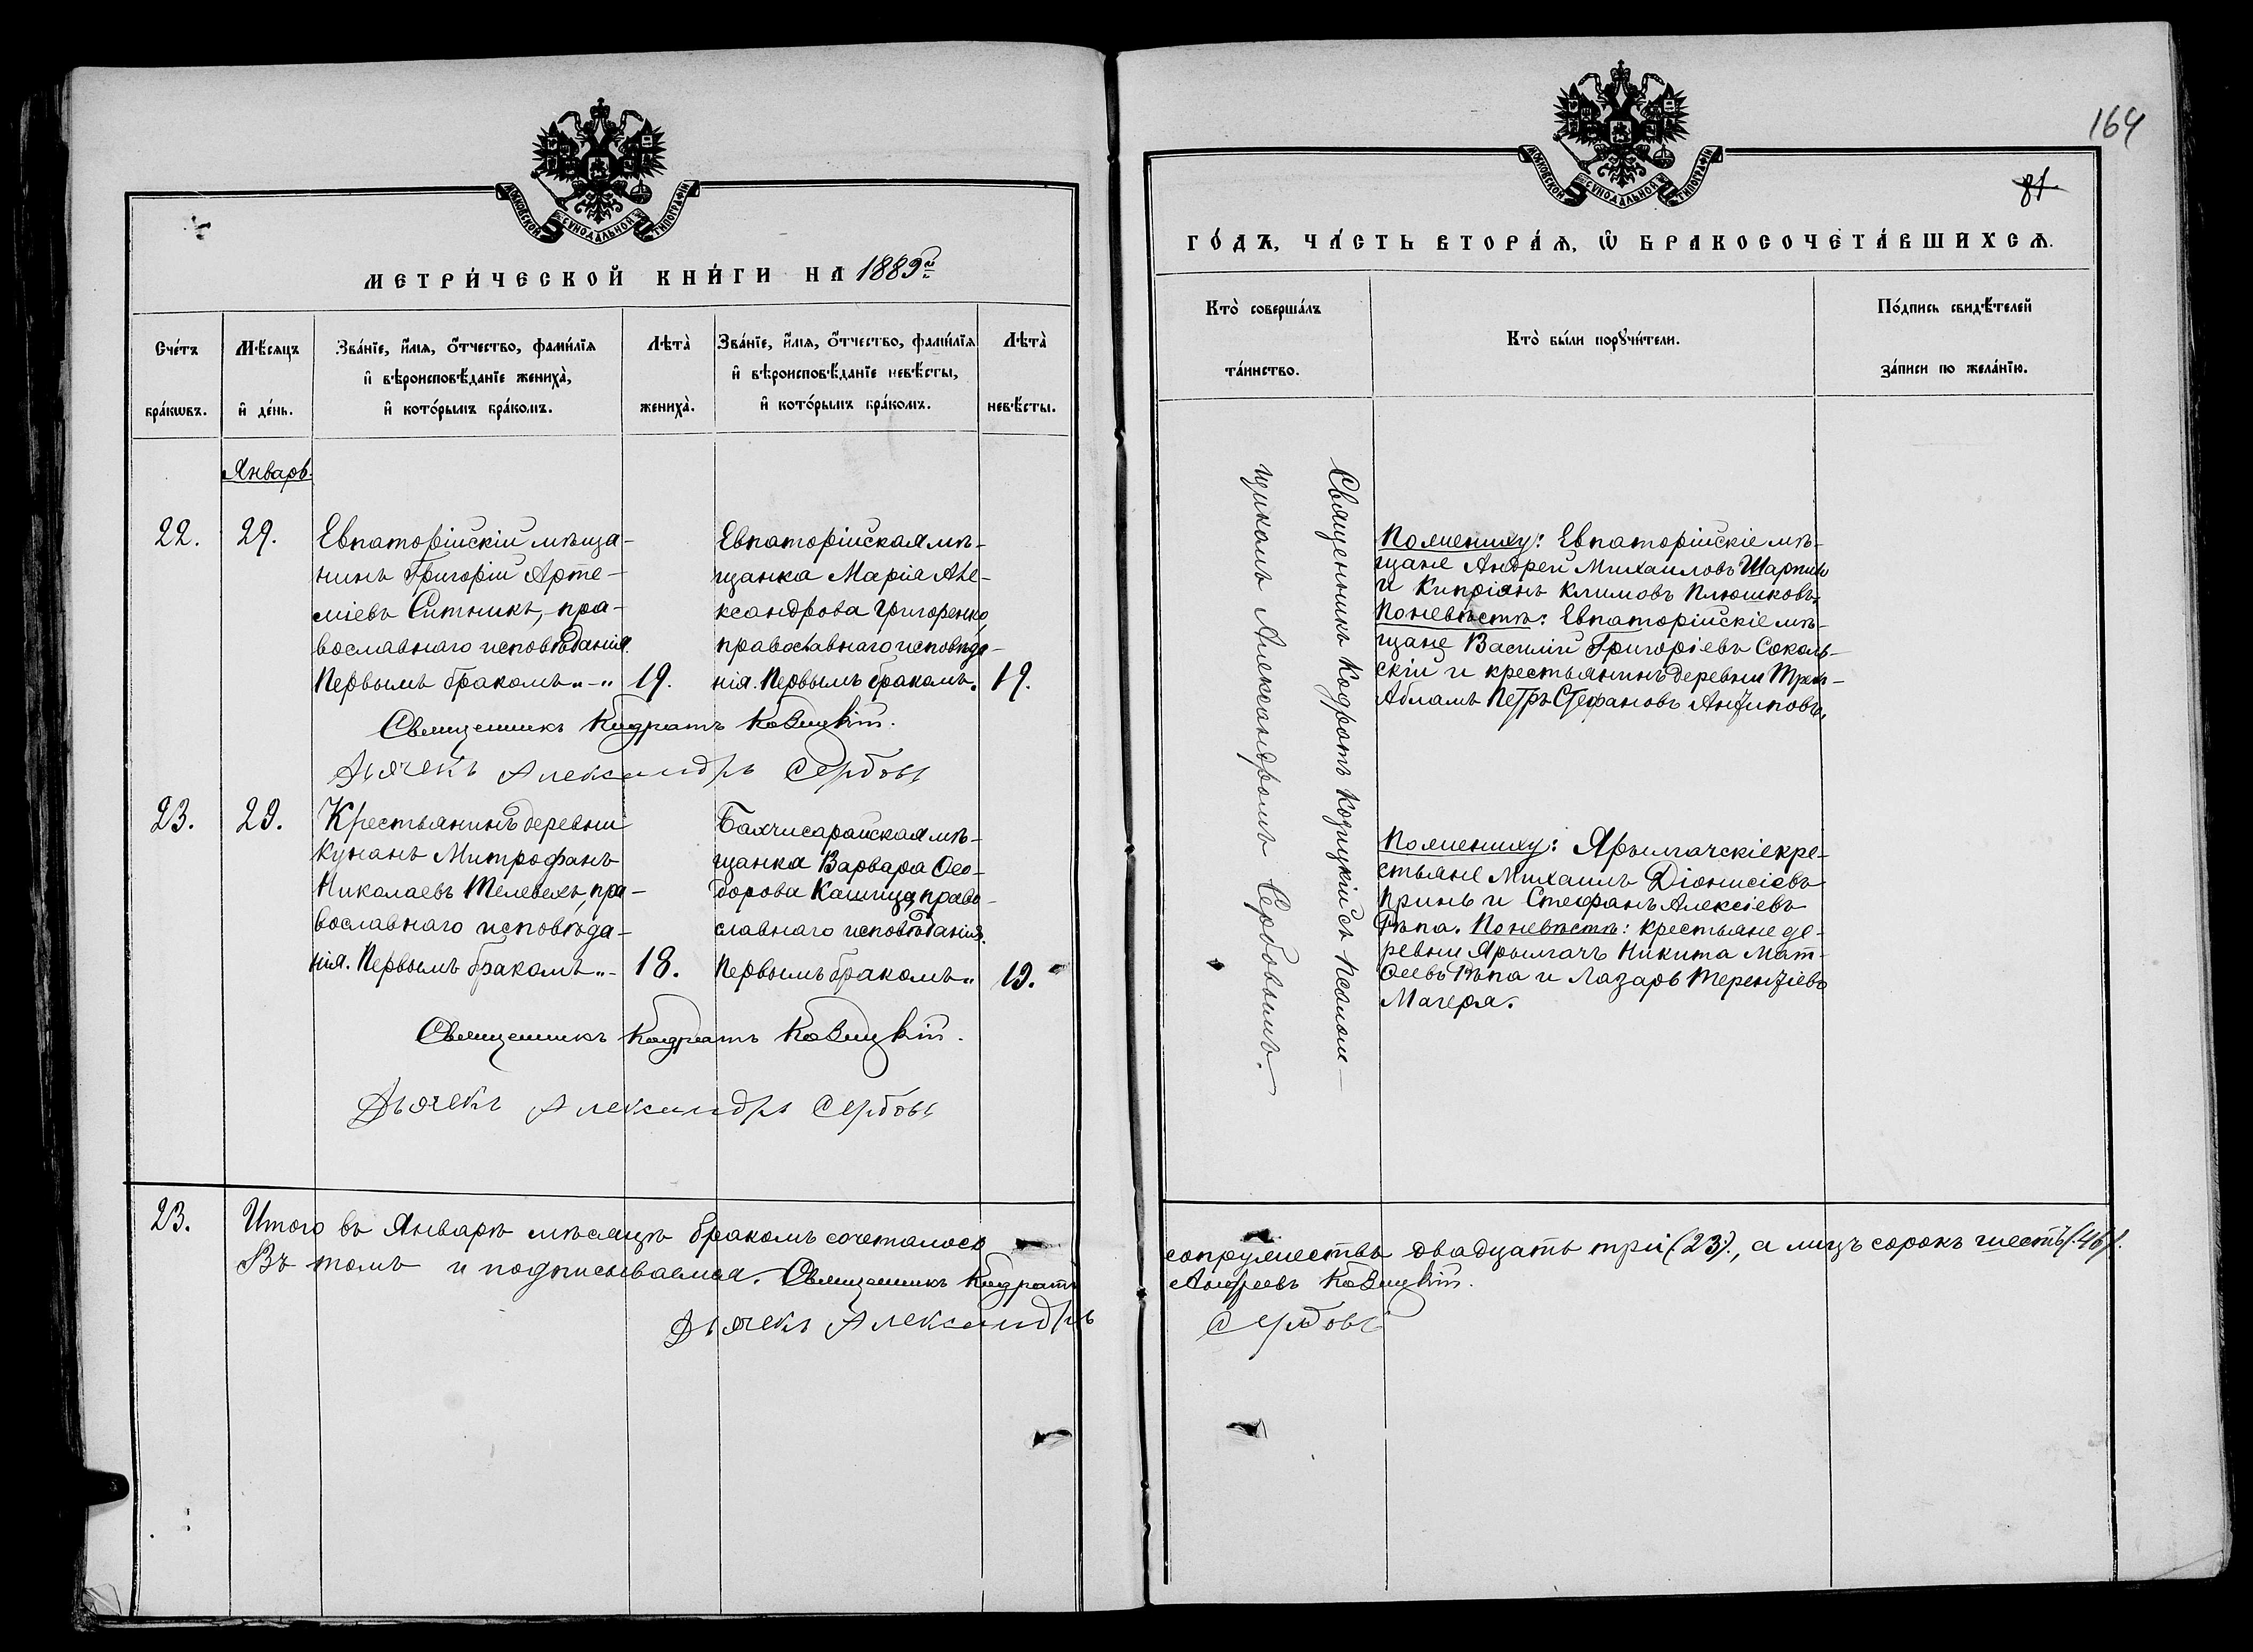 164
81
МОСКОВСКОЙ СѴНОДАЛЬНОЙ ТИПОГРАФІИ
МЕТРИ́ЧЕСКОЙ КНИ́ГИ НА 1889й
Сче́тъ бра́кѡвъ.
Мѣ́сяцъ и҆ де́нь.
Зва́нїе, и҆́мѧ, ѻ҆́тчество, фами́лїѧ
и҆ вѣроисповѣ́данїе жениха̀,
и҆ кото́рымъ бра́комъ.
Лѣта̀ жениха̀.
Зва́нїе, и҆́мѧ, ѻ҆́тчество, фами́лїѧ
и҆ вѣроисповѣ́данїе невѣ́сты,
и҆ кото́рымъ бра́комъ.
Лѣта̀ невѣ́сты.
Январь.
22.
29.
Евпаторійскій мѣща-
нинъ Григорій Арте-
міевъ Ситникъ, пра-
вославнаго исповѣданія.
Первымъ бракомъ „-„
19.
Евпаторійская мѣ-
щанка Марія Але-
ксандрова Григоренко,
православнаго исповѣда-
нія. Первымъ бракомъ.
19.
Священникъ Кодратъ Кодицкій.
Дьячекъ Александръ Сербовъ
23.
29.
Крестьянинъ деревни
Кунанъ Митрофанъ
Николаевъ Телевехъ, пра-
вославнаго исповѣда-
нія. Первымъ бракомъ „-
18.
Бахчисарайская мѣ-
щанка Варвара Ѳео-
дорова Кашица, право-
славнаго исповѣданія.
Первымъ бракомъ „
19.
Священникъ Кодратъ Кодицкій.
Дьячекъ Александръ Сербовъ
23.
Итого въ Январѣ мѣсяцѣ бракомъ сочеталось
Въ томъ и подписываемся. Священникъ Кодратъ
Дьячекъ Александръ
МОСКОВСКОЙ СѴНОДАЛЬНОЙ ТИПОГРАФІИ
ГО́ДЪ, ЧА́СТЬ ВТОРА́Ѧ, Ѽ БРАКОСОЧЕТА́ВШИХСѦ.
Кто̀ соверша́лъ
та́инство.
Кто̀ бы́ли порꙋчи́тели.
По́дпись свидѣ́телей
за́писи по жела́нїю.
Священникъ Кодратъ Кодицкій съ псаломъ-
щикомъ Александромъ Сербовымъ.
По жениху: Евпаторійскіе мѣ-
щане Андрей Михаиловъ Шарпило
и Кипріанъ Климовъ Плюшковъ.
По невѣстѣ: Евпаторійскіе мѣ-
щане Василій Григоріевъ Соколь-
скій и крестьянинъ деревни Треч-
Абламъ Петръ Стефановъ Антиповъ.
По жениху: Ярылгачскіе кре-
стьяне Михаилъ Діонисіевъ
Принь и Стефанъ Алексіевъ
Рѣпа. По невѣстѣ: крестьяне де-
ревни Ярылгачъ Никита Мат-
ѳеевъ Рѣпа и Лазарь Терентіевъ
Магеря.
сопружествъ двадцать три (23), а лицъ сорокъ шесть (46).
Андреевъ Кодицкій.
Сербовъ